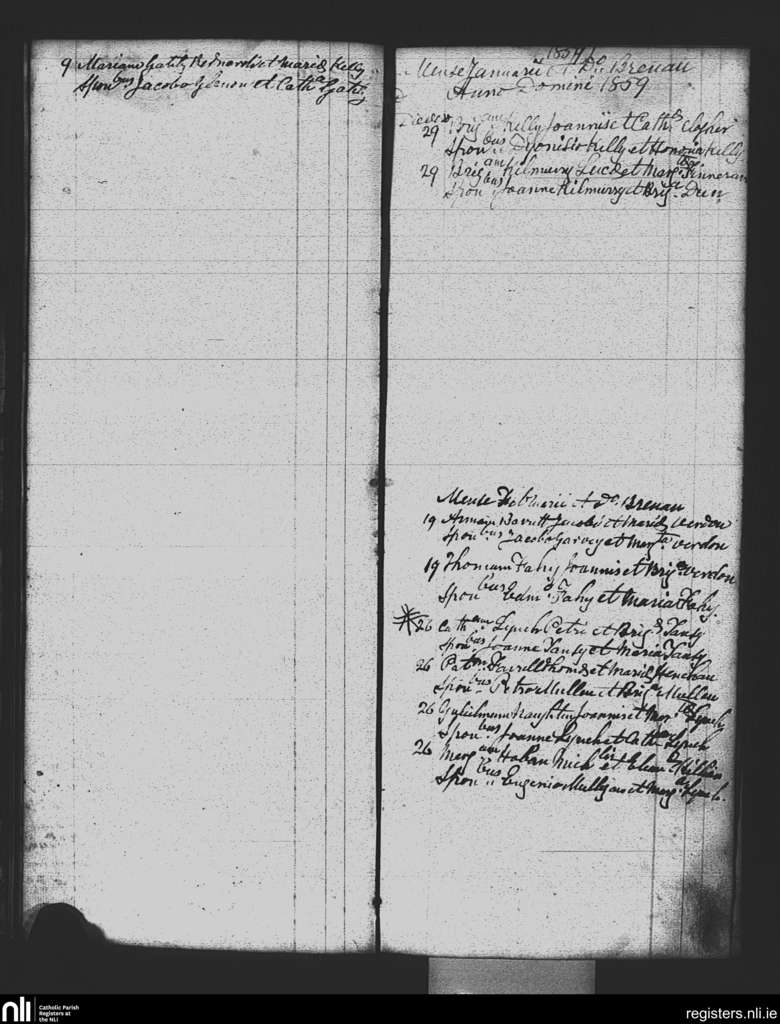 9 Mariam Gately Bednardi et Mariæ Kelly
Spon.bus Jacobo Glenon et Cath.a Gately
1859
Mense Januarii et Do. Brenan
Anno Domini 1859
Die
29 Brig.am Kelly Joannis et Cath.æ
Spon.bus Dionisio Kelly et Honoria Kelly
29 Brig.am Kilmurry Lucæ et Marg.tæ Finneran
Spon.bus Joanne Kilmurry et Brig.a Dun
Mense Feb.uarii et Do. Brenan
19 Barrett Jacobi et Mariæ Verdon
Spon.bus Jacobo Garvey et Marg.ta Verdon
19 Thomam Fahy Joannis et Brig.æ Verdon
Spon.bus Edm.do Fahy et Maria Fahy.
26 Cath.am Lynch Petri et Brig.æ Tansy
Spon.bus Joanne Tansy et Maria Tansy
26 Pat.m Farrell Thomæ et Mariæ Henehan
Spon.bus Petro Mullen et Brig.a Mullen
26 Gulielmum Naughtin Joannis et Mar.tæ Lynch
Spon.bus Joanne Lynch et Cath.a Lynch
26 Marg.am Hoban Mich.lis et Elenæ Killian
Spon.bus Eugenio Mulligan et Marg.ta Lynch.
nli
Catholic Parish
Registers at
the NLI
registers.nli.ie